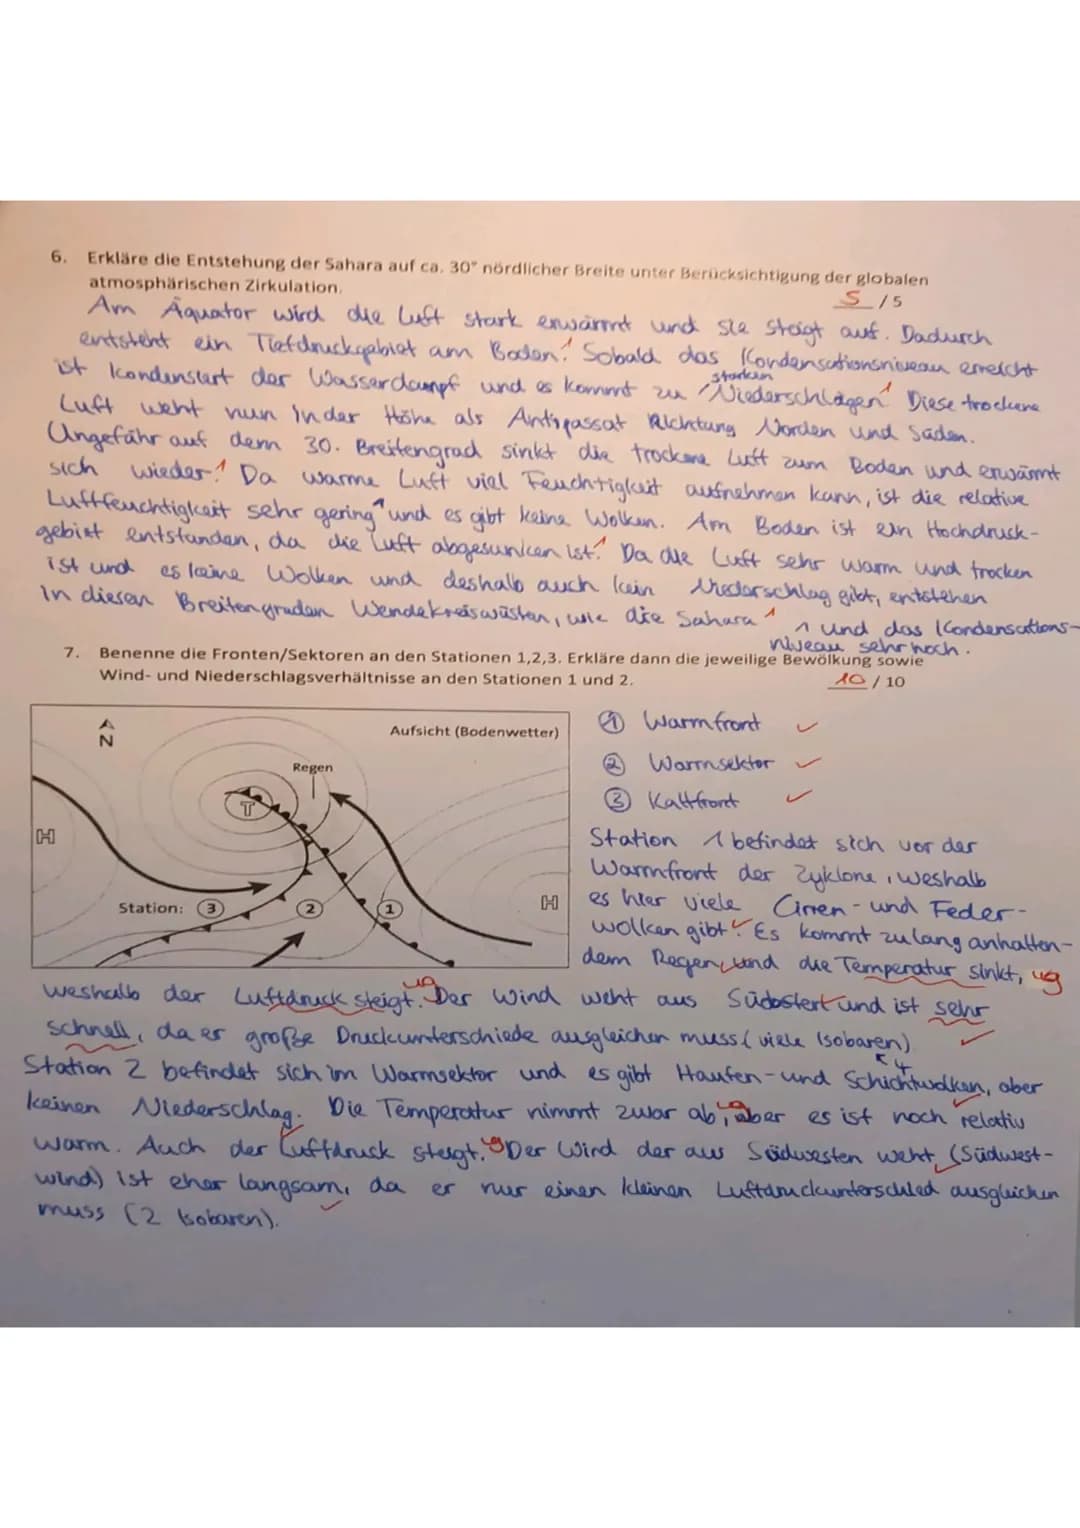 6. Erkläre die Entstehung der Sahara auf ca. 30° nördlicher Breite unter Berücksichtigung der globalen
atmosphärischen Zirkulation.
5 / 5
Am Äquator wird die Luft stark erwärmt und sie steigt auf. Dadurch
entsteht ein Tiefdruckgebiet am Boden. 1 Sobald das Kondensationsniveau erreicht
ist kondensiert der Wasserdampf und es kommt zu starken Niederschlägen. 1 Diese trockene
Luft weht nun in der Höhe als Antipassat Richtung Norden und Süden.
Ungefähr auf dem 30. Breitengrad sinkt die trockene Luft zum Boden und erwärmt
sich wieder. 1 Da warme Luft viel Feuchtigkeit aufnehmen kann, ist die relative
Luftfeuchtigkeit sehr gering 1 und es gibt keine Wolken. Am Boden ist ein Hochdruck-
gebiet entstanden, da die Luft abgesunken ist. 1 Da die Luft sehr warm und trocken
ist und es keine Wolken und deshalb auch kein Niederschlag gibt, entstehen
in diesen Breitengraden Wendekreiswüsten, wie die Sahara 1
1 und das Kondensations-
niveau sehr hoch.
7. Benenne die Fronten/Sektoren an den Stationen 1,2,3. Erkläre dann die jeweilige Bewölkung sowie
Wind- und Niederschlagsverhältnisse an den Stationen 1 und 2.
10 / 10
N
Aufsicht (Bodenwetter)
Regen
T
H
H
Station: 3
2
1
① Warmfront ✓
② Warmsektor ✓
③ Kaltfront ✓
Station 1 befindet sich vor der
Warmfront der Zyklone, weshalb
es hier viele Cirren- und Feder-
wolken gibt. ✓ Es kommt zu lang anhalten-
dem Regen, und die Temperatur sinkt, ug
weshalb der Luftdruck steigt. ug Der Wind weht aus Südosten und ist sehr
schnell, da er große Druckunterschiede ausgleichen muss (viele Isobaren) ✓
Station 2 befindet sich im Warmsektor und es gibt Haufen- und Schichtwolken, aber
keinen Niederschlag. Die Temperatur nimmt zwar ab, ug aber es ist noch relativ
warm. Auch der Luftdruck steigt. ug Der Wind der aus Südwesten weht (Südwest-
wind) ist eher langsam, da er nur einen kleinen Luftdruckunterschied ausgleichen
muss (2 Isobaren).